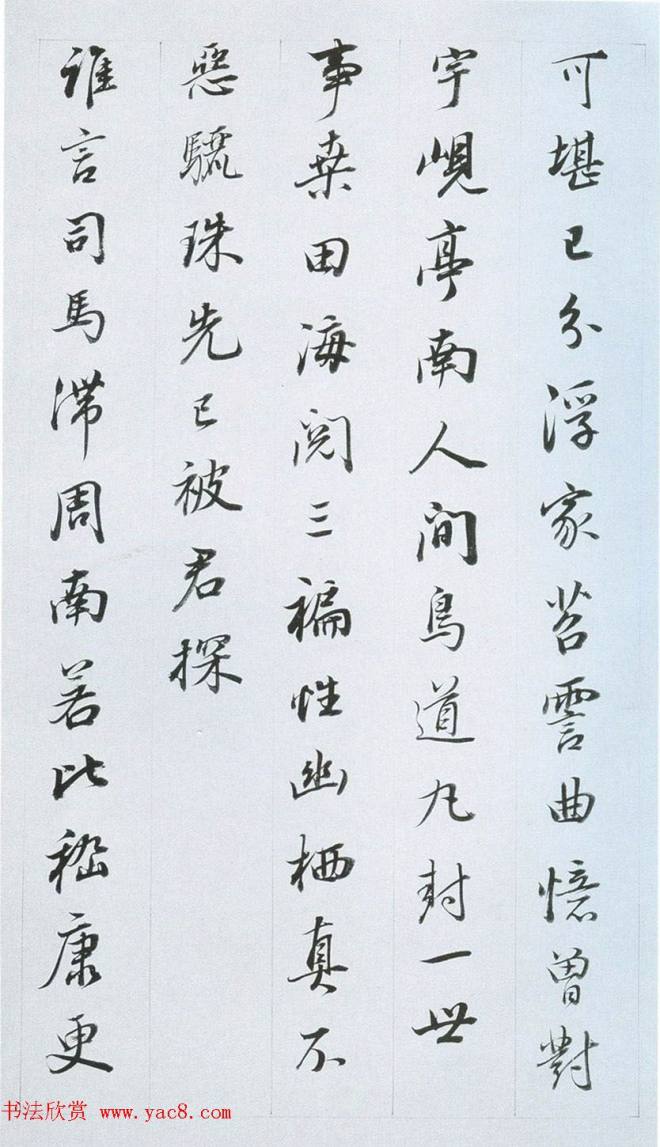 可堪已分浮家苕霅曲憶曾對
宇峴亭南人間鳥道丸封一世
事桒田海閱三褊性幽栖真不
惡驪珠先已被君探
誰言司馬滯周南若比嵇康更
书法欣赏 www.yac8.com